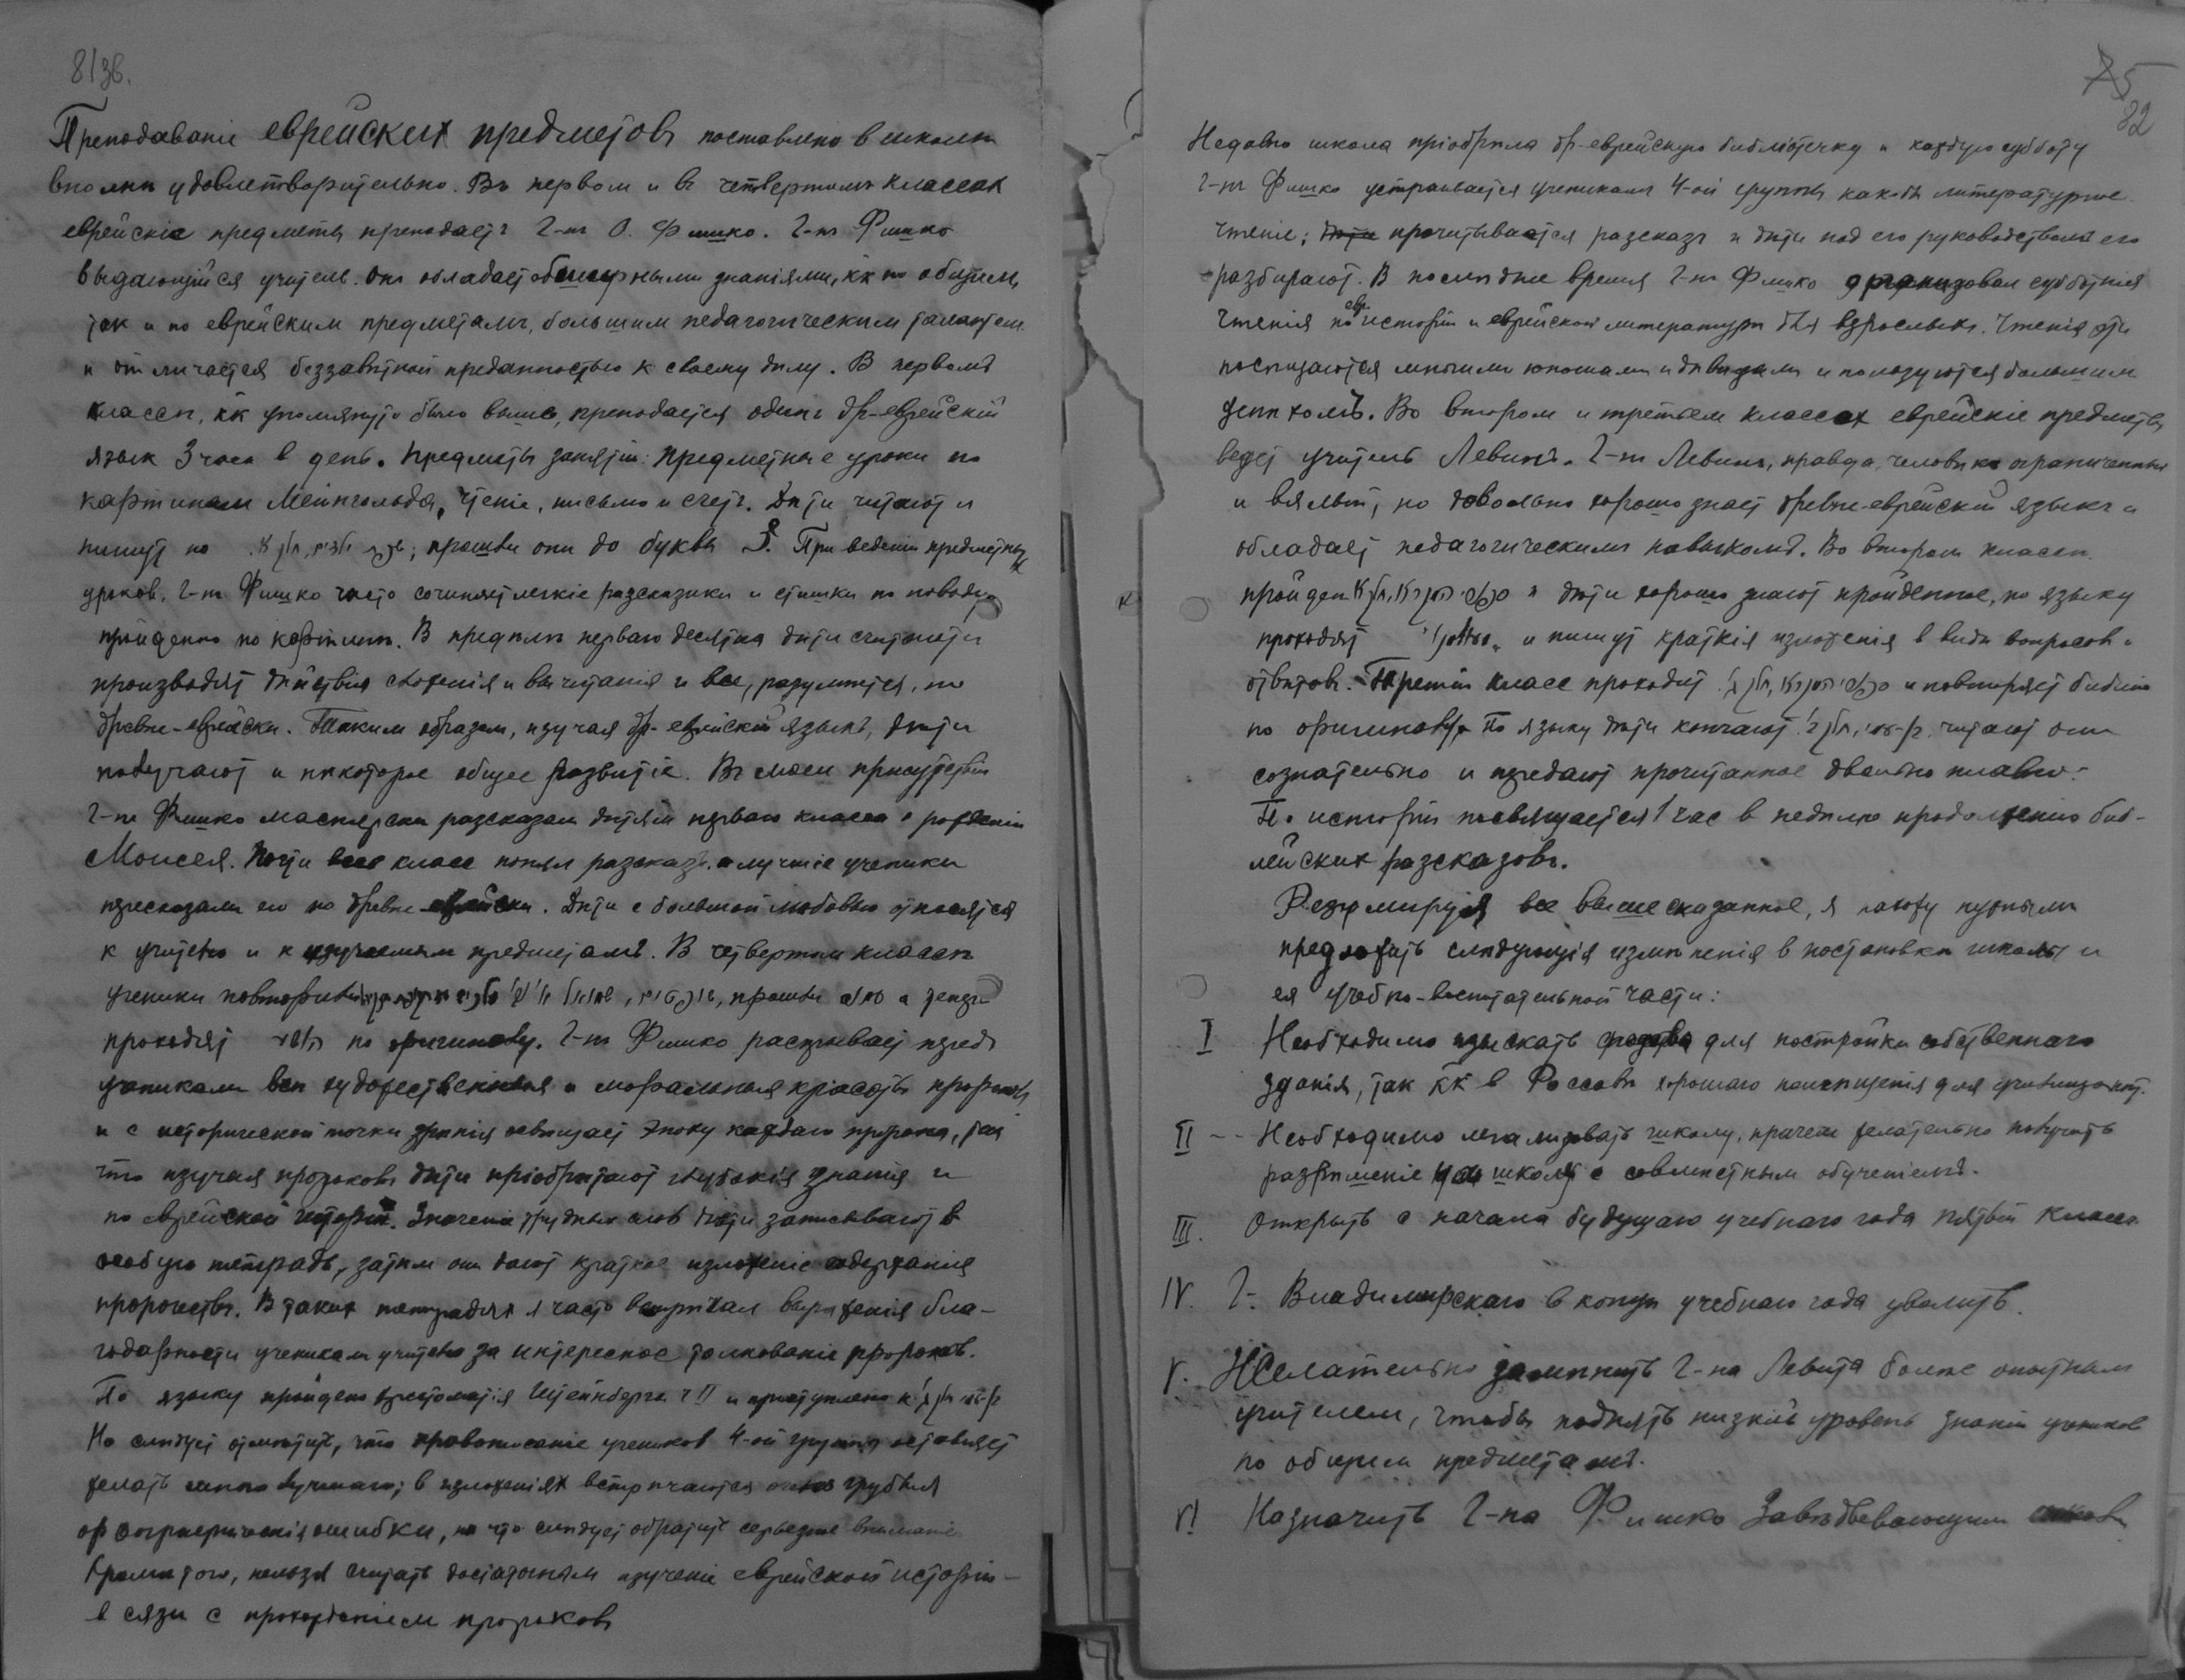 81зв.
Преподаваніе еврейских предметовъ поставлено в школѣ
вполнѣ удовлетворительно. Въ первом и въ четвертомъ классах
еврейскіе предметы преподаетъ г-нъ О. Фишко. г-нъ Фишко
выдающійся учитель. Онъ обладает обширными знаніями, кк по общим,
так и по еврейским предметамъ, большим педагогическим талантом
и отличается беззавѣтной преданностью к своему дѣлу. В первомъ
классѣ, кк упомянуто было выше, преподается одинъ др-еврейскій
язык 3 часа в день. Предметы занятій: предметные уроки по
картинам Мейнгольда, чтеніе, письмо и счетъ. Дѣти читают и
пишут по ; прошли они до буквы При веденіи предметных
уроков. г-нъ Фишко часто сочиняет легкіе разсказики и стишки по поводу
пройденно по картинѣ. В предѣлѣ перваго десятка дѣти считают и
производят дѣйствія сложенія и вычитанія и все, разумѣется, по
древне-еврейски. Таким образом, изучая др-еврейскій языкъ, дѣти
получают и нѣкоторое общее развитіе. Въ моем присутствіи
г-нъ Фишко мастерски разсказал дѣтям перваго класса о рожденіи
Моисея. Почти весь класс понял разсказъ, а лучшіе ученики
пересказали его по древне-еврейски. Дѣти с большой любовью относятся
к учителю и к изучаемым предметамъ. В четвертом классѣ
ученики повторили прошли а теперь
проходят по оригиналу. г-нъ Фишко раскрывает передъ
учениками всѣ художественныя и моральныя красоты пророковъ
и с исторической точки зрѣнія освѣщает эпоху каждаго пророка, так
что изучая пророковъ дѣти пріобрѣтают глубокія знанія и
по еврейской исторіи. Значенія трудных слов дѣти записывают в
особую тетрадь, затѣм они дают краткое изложеніе содержанія
пророчествъ. В таких тетрадях я часто встрѣчал выраженія бла-
годарности ученикам учителю за интересное толкованіе пророков.
По языку пройдена хрестоматія Штейнберга ч II и приступлено к
Но слѣдует отмѣтить, что правописаніе учеников 4-ой группы оставляет
желать много лучшаго; в изложеніях встрѣчаются очень грубыя
орфографическія ошибки, на что слѣдует обратить серьезное вниманіе
Кромѣ того, нельзя считать достаточным изученіе еврейской исторіи -
в связи с прохожденіем пророковъ
75
82
Недавно школа пріобрѣла др-еврейскую библіотечку и каждую субботу
г-нъ Фишко устраивается ученикам 4-ой группы литературное
чтеніе; прочитывается разсказъ и дѣти под его руководством его
разбирают. В послѣднее время г-нъ Фишко организовал субботнія
чтенія по евр. исторіи и еврейской литературѣ для взрослыхъ. Чтенія эти
посѣщаются многими юношами и дѣвицами и пользуются большим
успѣхомъ. Во втором и третьем классах еврейскіе предметы
ведет учитель Левинъ. г-нъ Левинъ, правда, человѣкъ ограниченный
и вялый, но довольно хорошо знает древне-еврейскій языкъ и
обладает педагогическимъ навыкомъ. Во втором классѣ
пройден и дѣти хорошо знают пройденное, по языку
проходят и пишут краткія изложенія в видѣ вопросов и
отвѣтовъ. Третій класс проходит и повторяет библію
по оригиналу. По языку дѣти кончают читают они
сознательно и передают прочитанное довольно плавно.
По исторіи посвящается 1 час в недѣлю продолженію биб-
лейских разсказовъ.
Резюмируя все вышесказанное, я нахожу нужным
предложить слѣдующія измѣненія в постановкѣ школы и
ея учебно-воспитательной части:
I Необходимо изыскать средства для постройки собственнаго
зданія, так кк в Россавѣ хорошаго помѣщенія для училища нѣт.
II -- Необходимо легализовать школу, причем желательно получить
разрѣшеніе на школу с совмѣстным обученіемъ.
III. Открыть с начала будущаго учебнаго года пятый классъ
IV. Г. Владимирскаго в концѣ учебнаго года уволить.
V. Желательно замѣнить г-на Левита болѣе опытным
учителем, чтобы поднять низкій уровень знаній учеников
по общим предметамъ.
VI Назначить г-на Фишко Завѣдывающим школы